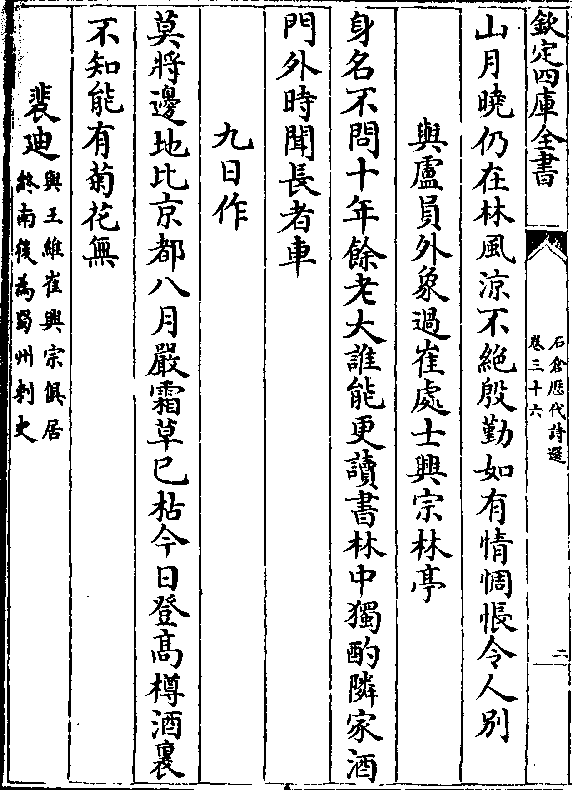 欽定四庫全書
石倉歷代詩選
卷三十六
二
山月曉仍在林風涼不絕殷勤如有情惆悵令人別
與盧員外象過崔處士興宗林亭
身名不問十年餘老大誰能更讀書林中獨酌隣家酒
門外時聞長者車
九日作
莫將邊地比京都八月嚴霜草已枯今日登髙樽酒裏
不知能有菊花無
裴迪
與王維崔興宗俱居
終南後為蜀州刺史